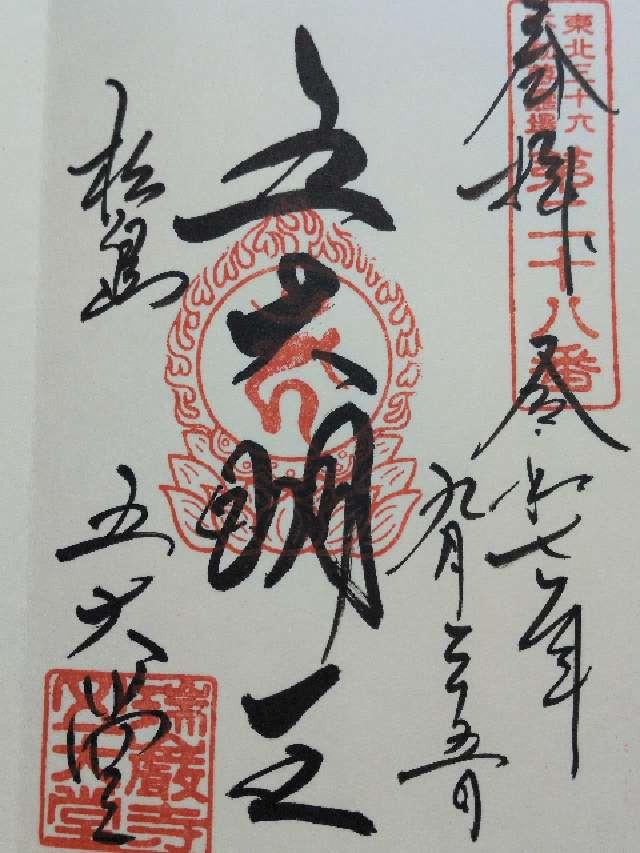 奉拝
東北三十六
不動尊霊場
第二十八番
令和七年
九月二十五日
五大明王
松島
五大堂
瑞巌寺
五大堂